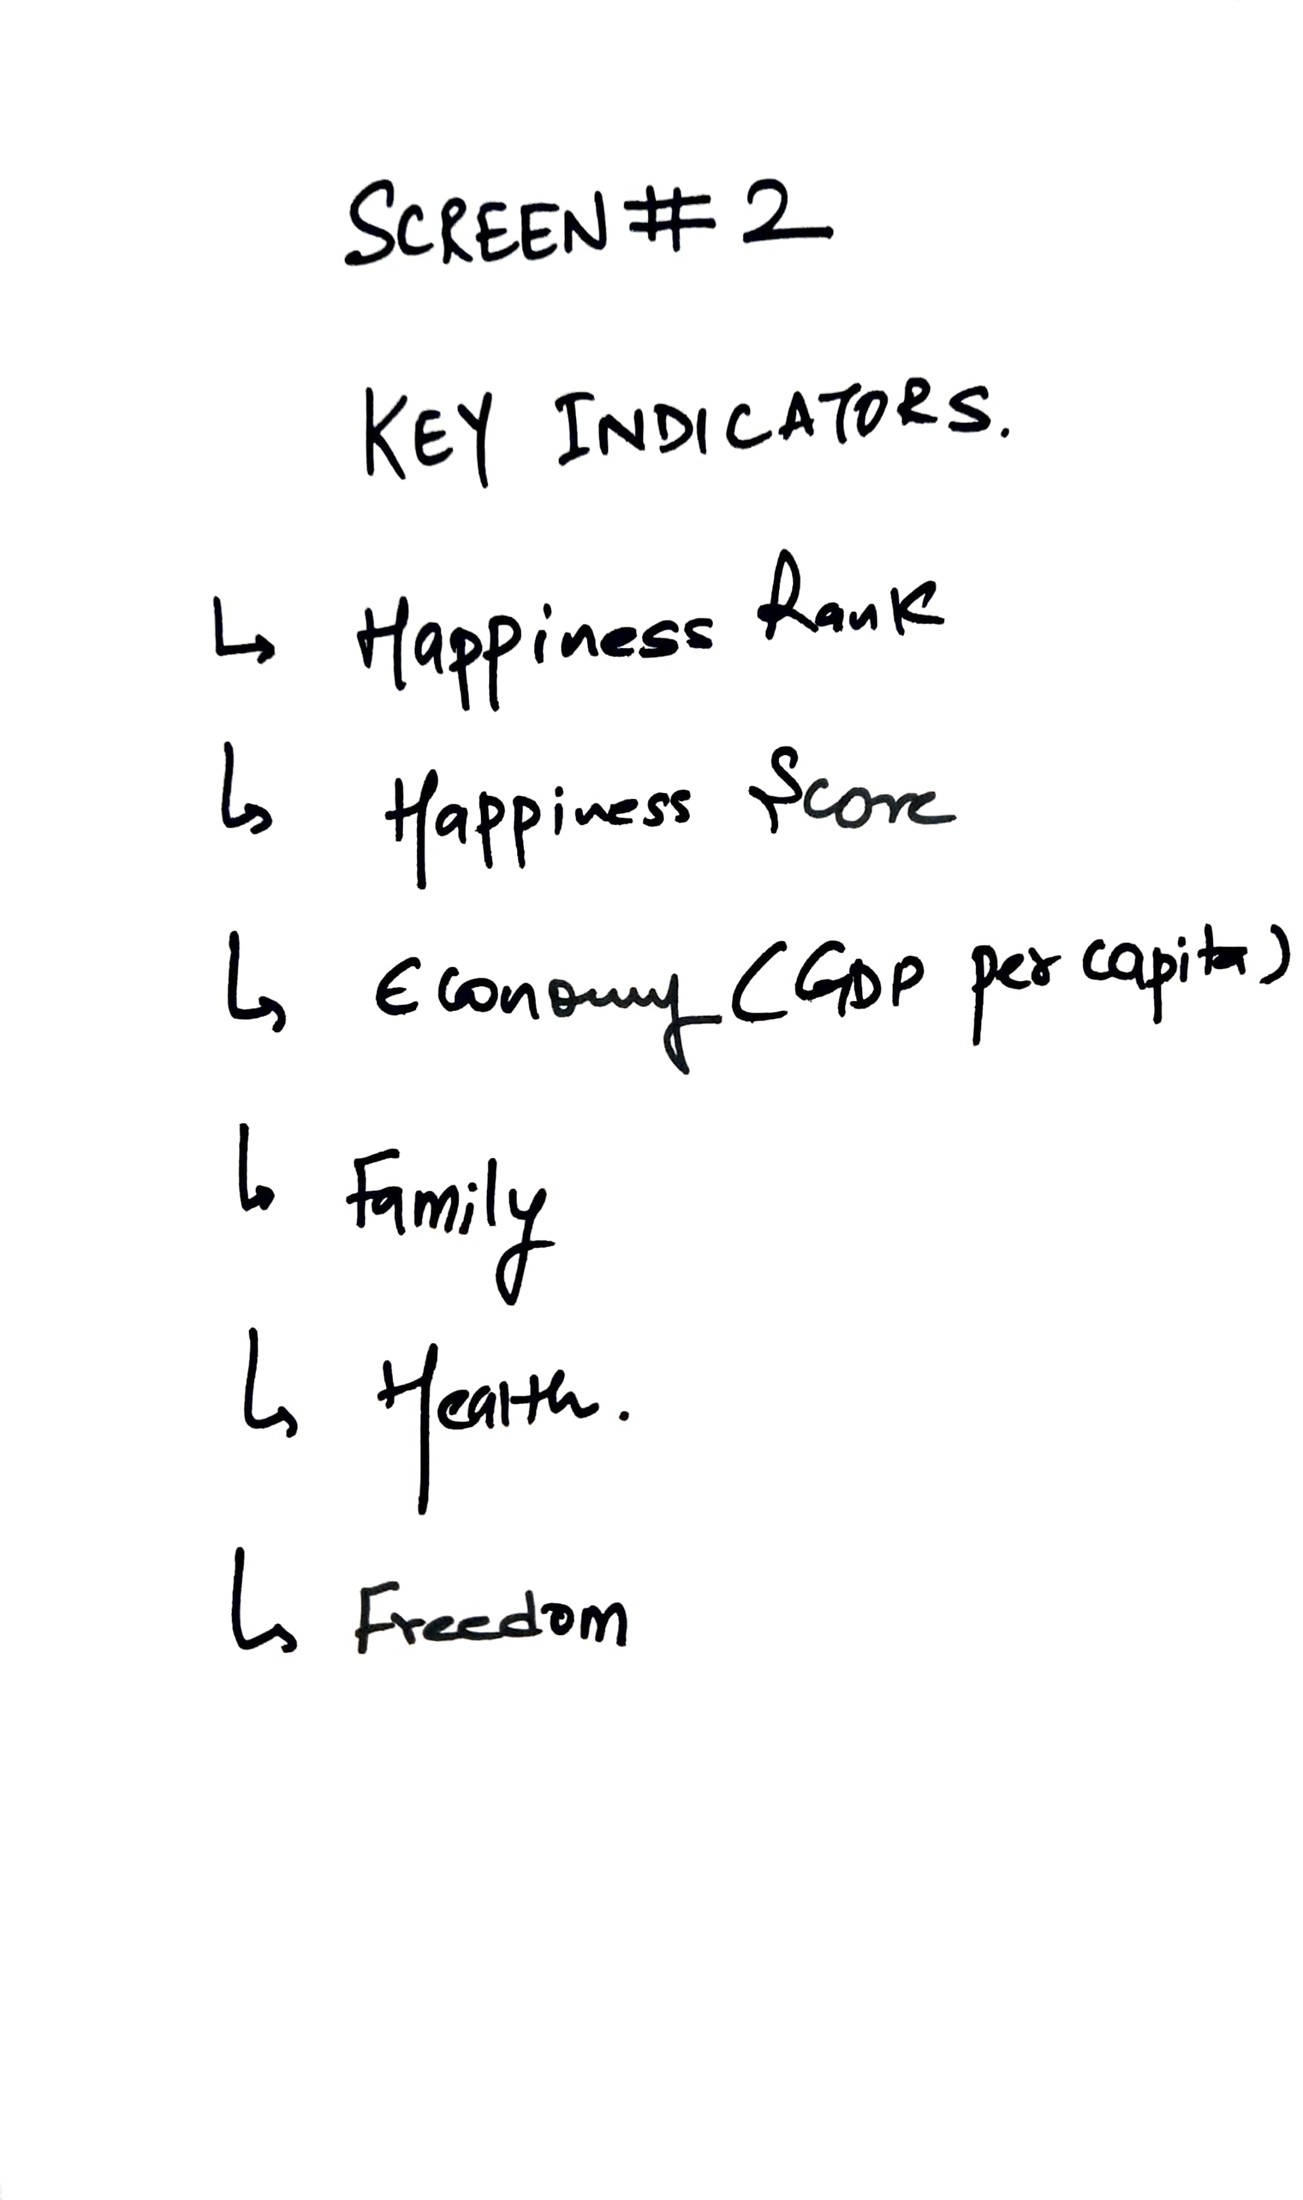 SCREEN # 2
KEY INDICATORS.
↳ Happiness Rank
↳ Happiness Score
↳ Economy (GDP per capita)
↳ Family
↳ Health.
↳ Freedom